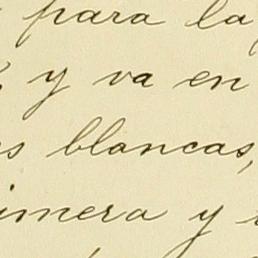 para la
y va en
s blancas,
imera y